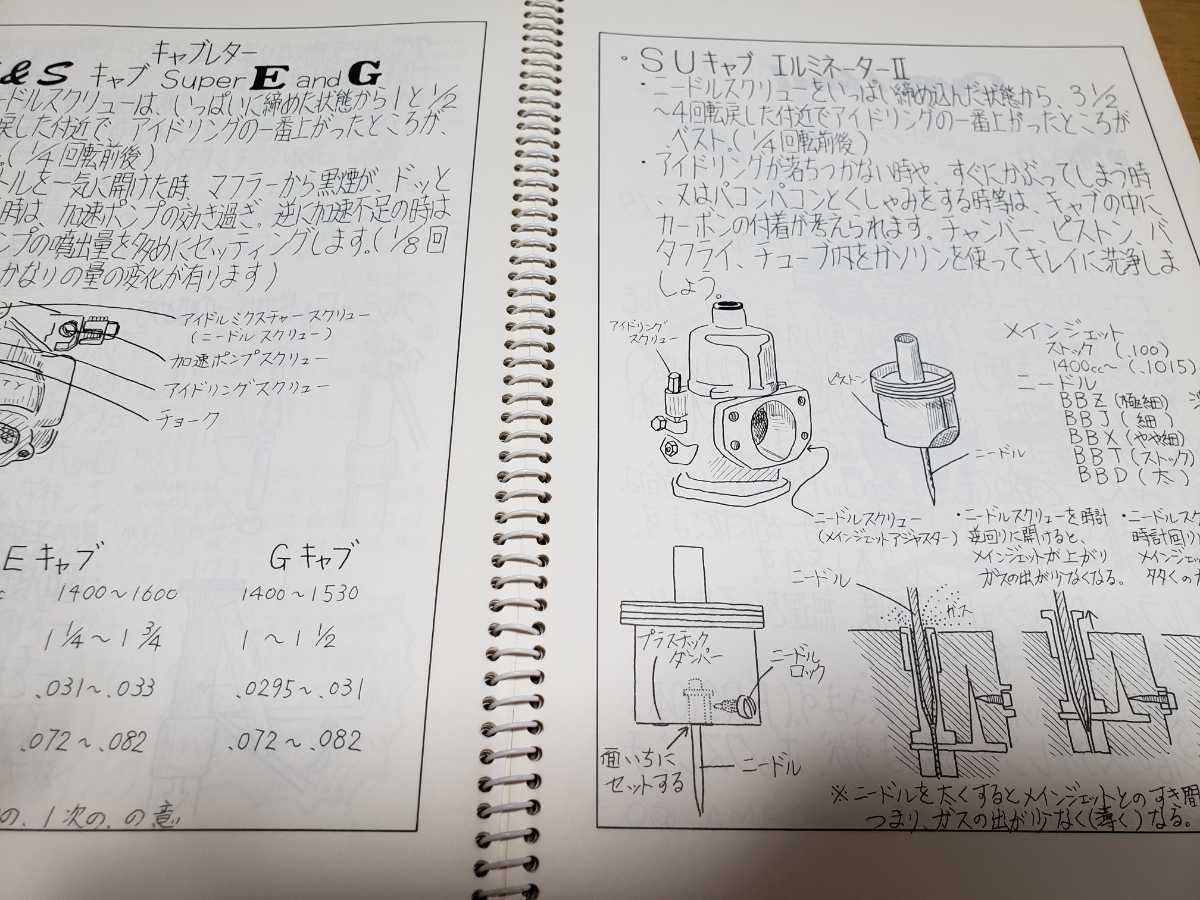 キャブレター
&S キャブ Super E and G
ードルスクリューは、いっぱいに締めた状態から1と1/2
戻した付近で、アイドリングの一番上がったところが、
(1/4回転前後)
トルを一気に開けた時、マフラーから黒煙が、ドッと
時は、加速ポンプの効き過ぎ。逆に加速不足の時は
ンプの噴出量を多めにセッティングします。(1/8回
かなりの量の変化が有ります)
アイドルミクスチャースクリュー
(ニードルスクリュー)
加速ポンプスクリュー
アイドリングスクリュー
チョーク
TY
Eキャブ Gキャブ
1400〜1600 1400〜1530
1 1/4〜1 3/4 1〜1 1/2
.031〜.033 .0295〜.031
.072〜.082 .072〜.082
の、1次の、の意
・SUキャブ エルミネーターII
・ニードルスクリューをいっぱい締め込んだ状態から、3 1/2
〜4回転戻した付近でアイドリングの一番上がったところが
、ベスト。(1/4回転前後)
・アイドリングが落ちつかない時や、すぐにかぶってしまう時
、又はパコンパコンとくしゃみをする時等は、キャブの中に
カーボンの付着が考えられます。チャンバー、ピストン、バ
タフライ、チューブ内をガソリンを使ってキレイに洗浄しま
しょう。
アイドリング
スクリュー
ピストン
ニードル
メインジェット
ストック (.100)
1400cc〜 (.1015)
ニードル
BBZ (極細)
BBJ (細)
BBX (やや細)
BBT (ストック)
BBD (太)
ニードルスクリュー
(メインジェットアジャスター)
・ニードルスクリューを時計
逆回りに開けると、
メインジェットが上がり
ガスの出が少なくなる。
・ニードルスク
時計回りに
メインジェッ
多くのガ
プラスチック
ダンパー
ニードル
ロック
面いちに
セットする
ニードル
ニードル
ガス
※ニードルを太くするとメインジェットとのすき間
つまり、ガスの出が少なく(薄く)なる。